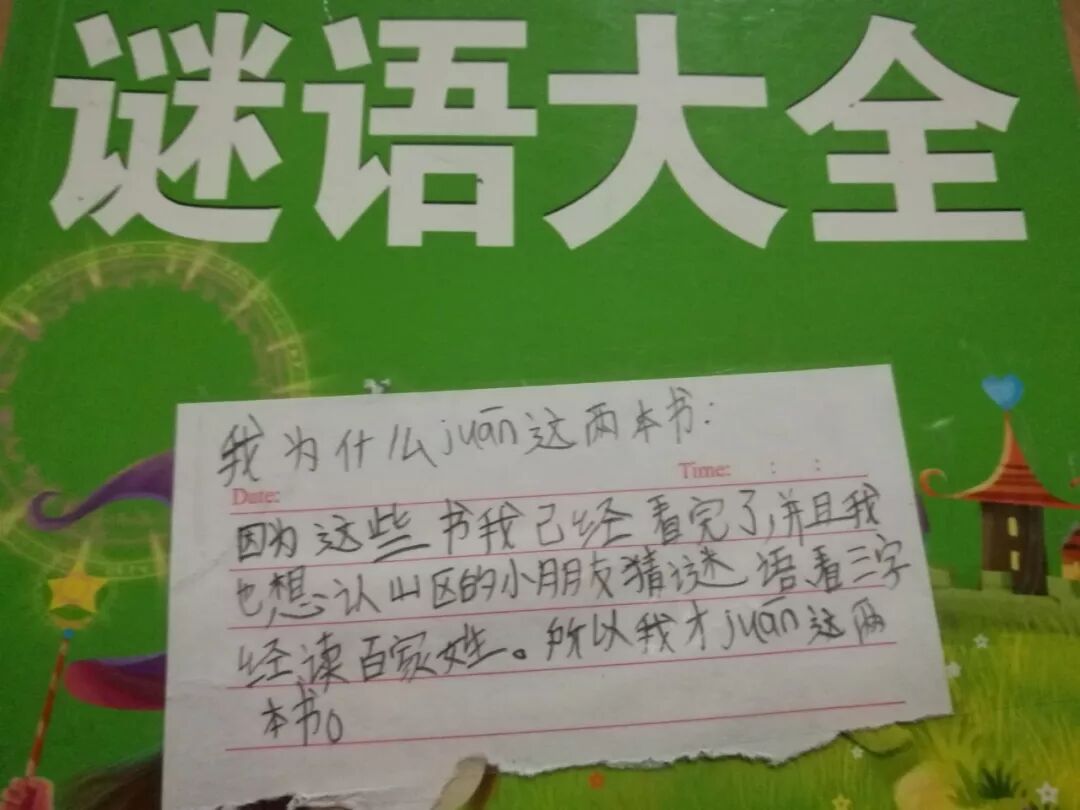 谜语大全
我为什么juān这两本书:
Date:
Time: : :
因为这些书我已经看完了,并且我
也想认山区的小朋友猜谜语、看三字
经、读百家姓。所以我才juān这两
本书。